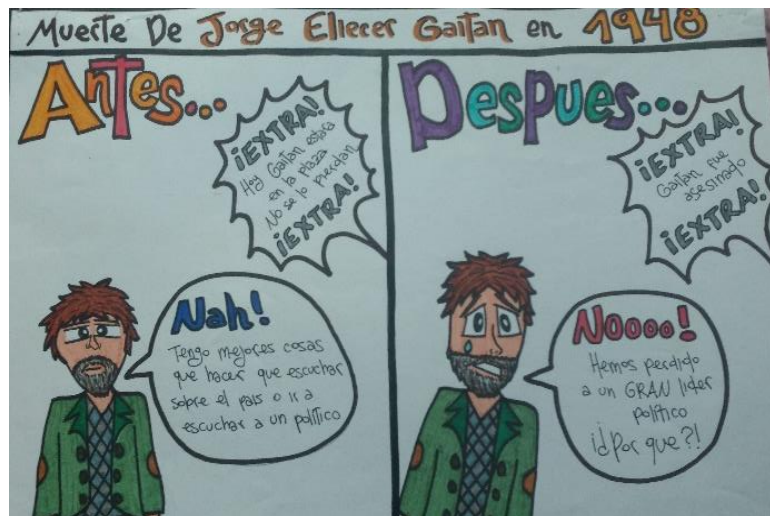 Muerte De Jorge Eliecer Gaitan en 1948
Antes...
¡EXTRA!
Hoy Gaitan estara
en la plaza
No se lo pierdan
¡EXTRA!
Nah!
Tengo mejores cosas
que hacer que escuchar
sobre el pais o ir a
escuchar a un político
Despues...
¡EXTRA!
Gaitan fue
asesinado
¡EXTRA!
Noooo!
Hemos perdido
a un GRAN lider
político
¡¿Por que?!